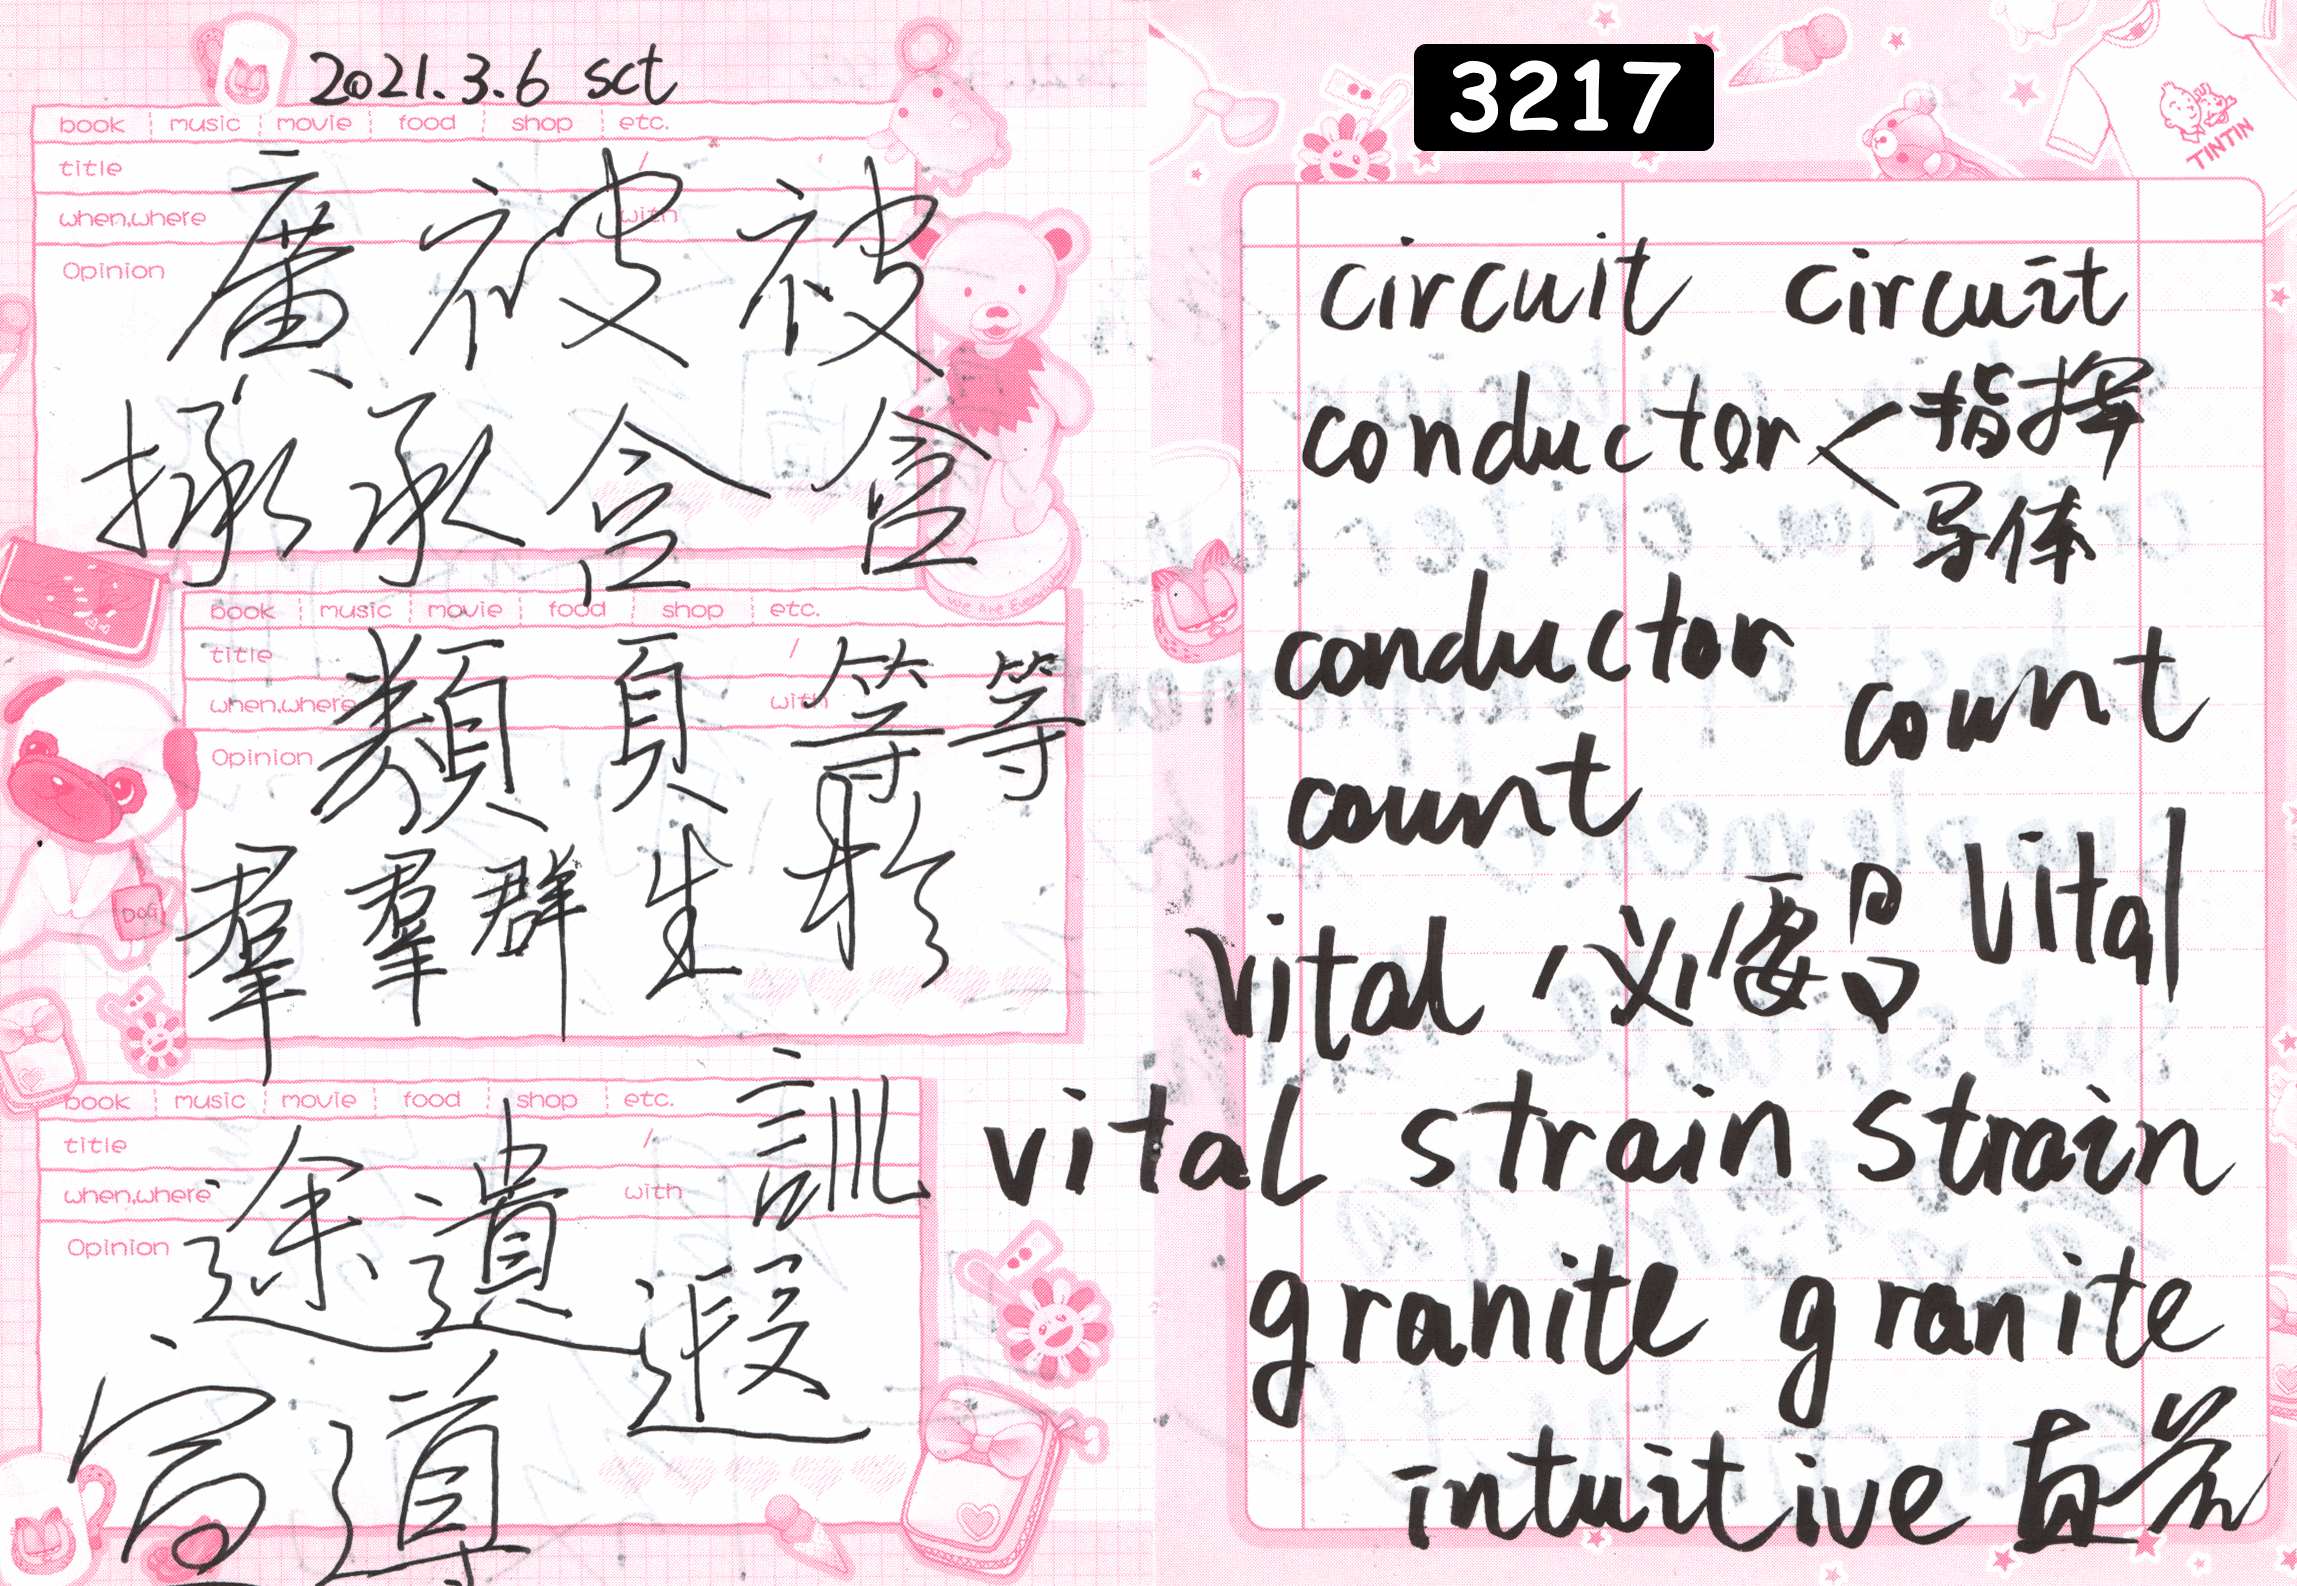 2021.3.6 sct
book music movie food shop etc.
title /
when,where with
Opinion
廣 被 被
拯 承 含 含
We Are Every
book music movie food shop etc.
title /
when,where with
Opinion
類 頁 等 等
羣 羣 群 生
DOG
book music movie food shop etc.
title /
when,where with
Opinion
訓
途 遺 遐
宣 導
3217
TINTIN
circuit circuit
conductor < 指挥
导体
conductor count
count
vital 必要品 vital
vital strain strain
granite granite
intuitive 直觉